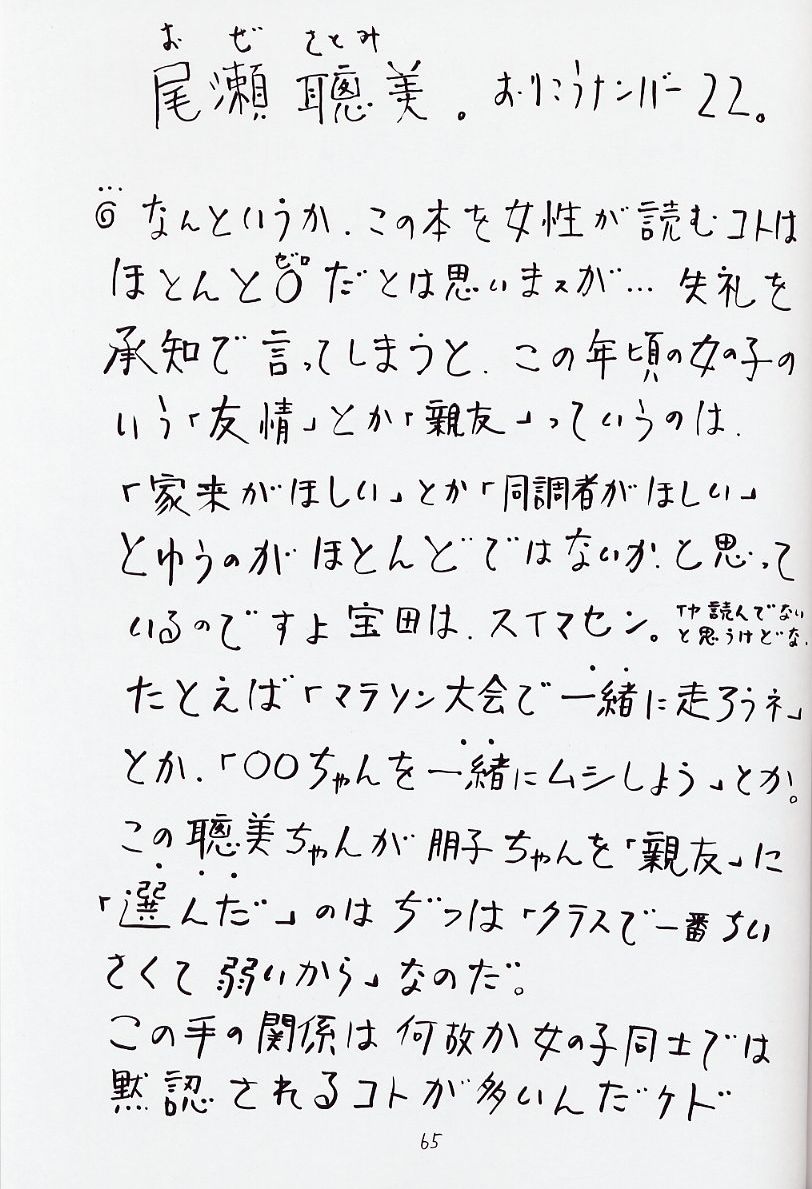 おぜ さとみ
尾瀬 聰美。おりこうナンバー22。
◎ なんというか、この本を女性が読むコトは
ゼロ
ほとんど0だとは思いまスが… 失礼を
承知で言ってしまうと、この年頃の女の子の
いう「友情」とか「親友」っていうのは、
「家来がほしい」とか「同調者がほしい」
とゆうのがほとんどではないか?と思って
いるのですよ宝田は、スイマセン。
读んでない
と思うけどな、
たとえば「マラソン大会で一緒に走ろうネ」
とか、「〇〇ちゃんを一緒にムシしよう」とか。
この聰美ちゃんが朋子ちゃんを「親友」に
「選んだ」のはぢつは「クラスで一番ちい
さくて弱いから」なのだ。
この手の関係は何故か女の子同士では
黙認されるコトが多いんだケド
65